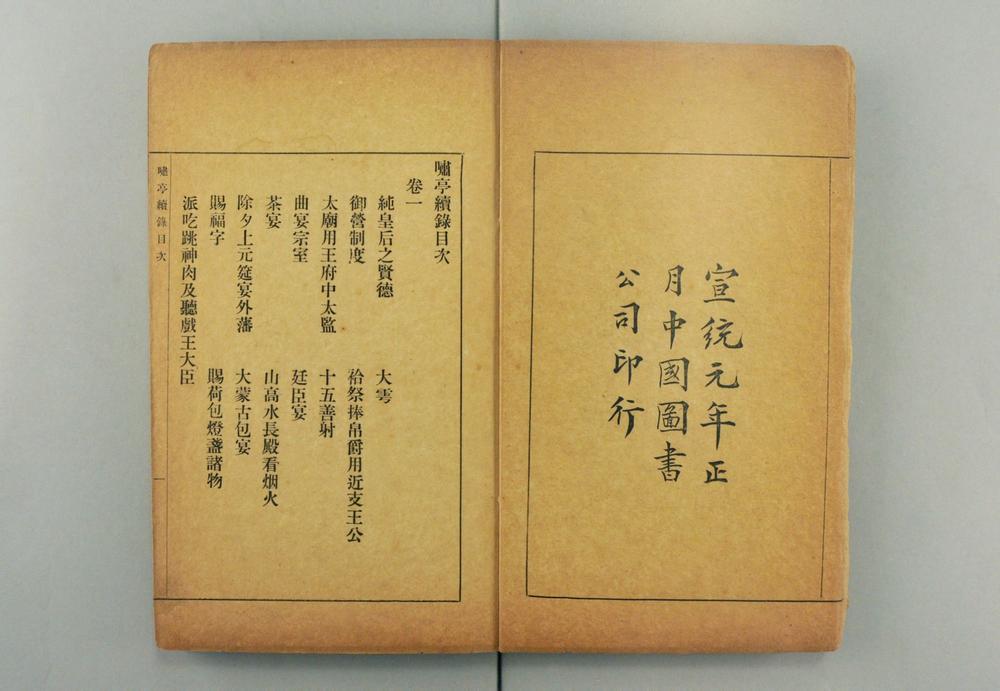 宣統元年正
月中國圖書
公司印行
嘯亭續錄目次
卷一
純皇后之賢德　大雩
御營制度　祫祭捧帛爵用近支王公
太廟用王府中太監　十五善射
曲宴宗室　廷臣宴
茶宴　山高水長殿看烟火
除夕上元筵宴外藩　大蒙古包宴
賜福字　賜荷包燈盞諸物
派吃跳神肉及聽戲王大臣
嘯亭續錄目次